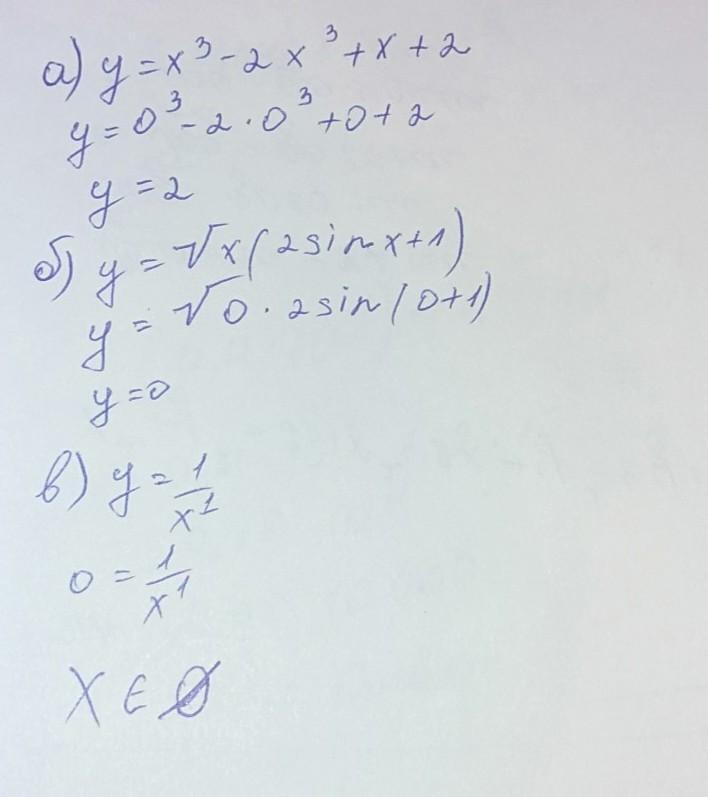 а) y = x³ - 2x³ + x + 2
y = 0³ - 2 · 0³ + 0 + 2
y = 2
б) y = √x (2 sin x + 1)
y = √0 · 2 sin (0 + 1)
y = 0
в) y = 1/x¹
0 = 1/x¹
X ∈ Ø